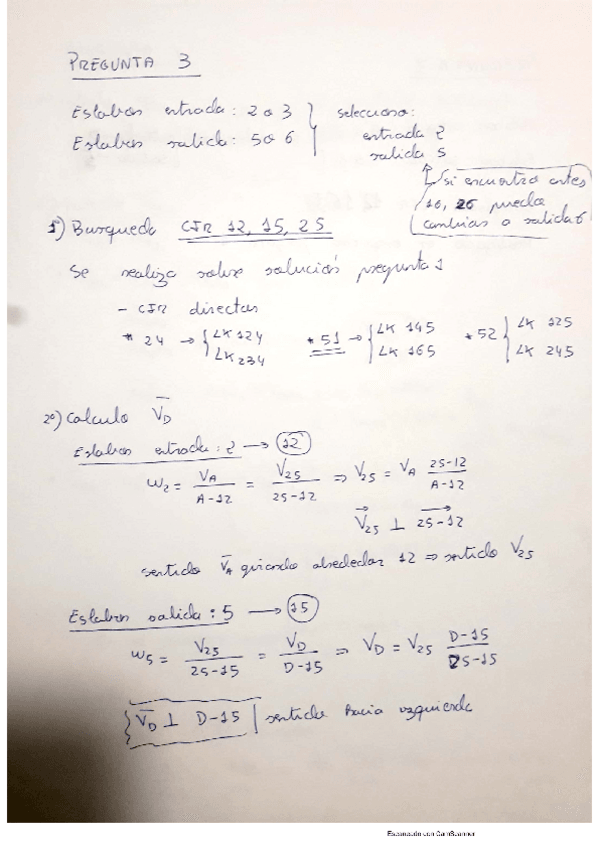 PREGUNTA 3
Eslabon entrada: 2 o 3 } selecciono:
Eslabon salida: 5 o 6 entrada 2
salida 5
si encuentro antes
16, 26 puedo
cambiar a salida 6
1º) Busqueda CIR 12, 15, 25
Se realiza sobre solución pregunta 1
- CIR directas
* 24 → { LK 124 * 51 → { LK 145 * 52 { LK 125
LK 234 LK 165 LK 245
2º) Calculo V̄D
Eslabon entrada: 2 → 12
ω2 = VA / A-12 = V25 / 25-12 ⇒ V25 = VA 25-12 / A-12
V⃗25 ⊥ 25-12
sentido V̄A girando alrededor 12 ⇒ sentido V25
Eslabon salida: 5 → 15
ω5 = V25 / 25-15 = VD / D-15 ⇒ VD = V25 D-15 / 25-15
{ V̄D ⊥ D-15 | sentido hacia izquierda
Escaneado con CamScanner